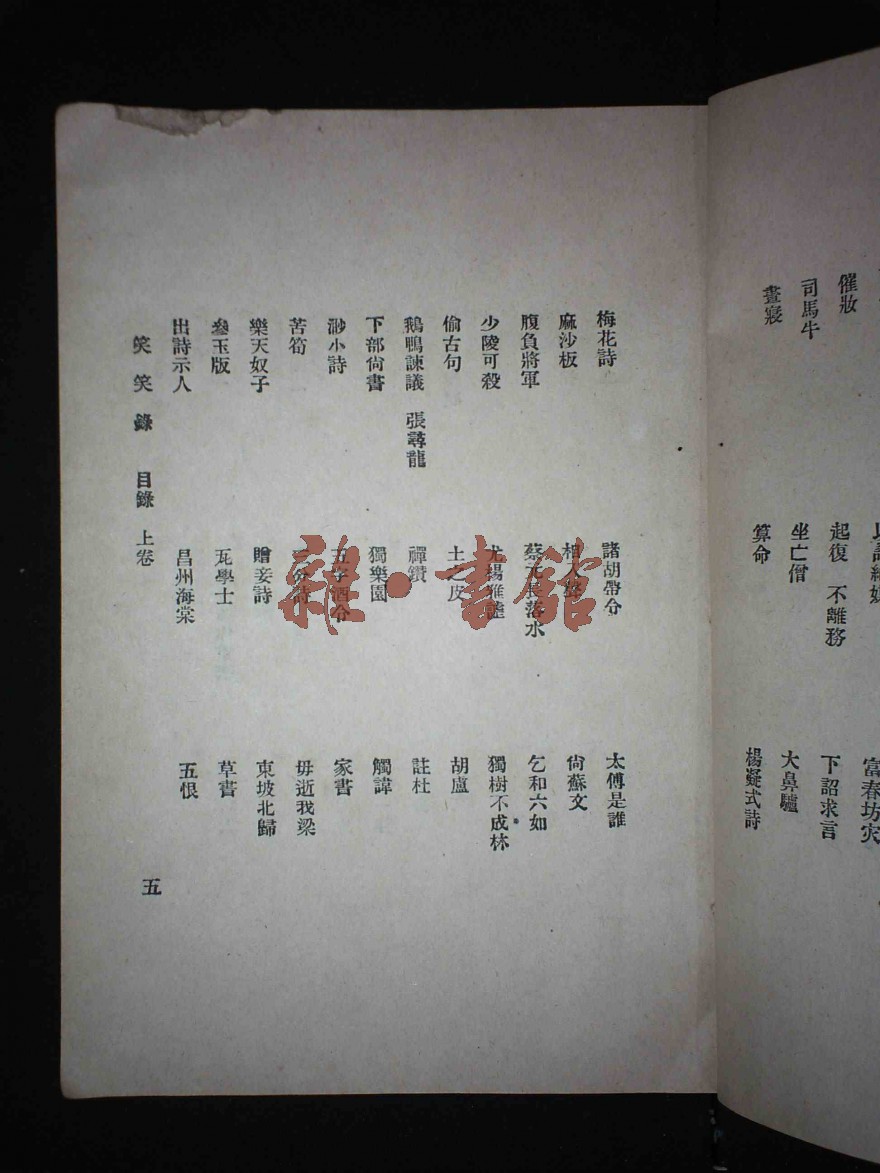 催妝
司馬牛
晝寢
起復 不離務
坐亡僧
算命
富春坊灾
下詔求言
大鼻驢
楊凝式詩
梅花詩
諸胡帶令
太傅是誰
麻沙板
尙蘇文
腹負將軍
蔡元長落水
乞和六如
少陵可殺
尤楊雅謔
獨樹不成林
偷古句
土之皮
胡盧
鵝鴨諫議 張尋龍
禪鑽
註杜
下部尙書
獨樂園
觸諱
渺小詩
五字酒令
家書
苦筍
三分詩
毋逝我梁
樂天奴子
贈妾詩
東坡北歸
叅玉版
瓦學士
草書
出詩示人
昌州海棠
五恨
笑笑錄 目錄 上卷
五
雜·書館